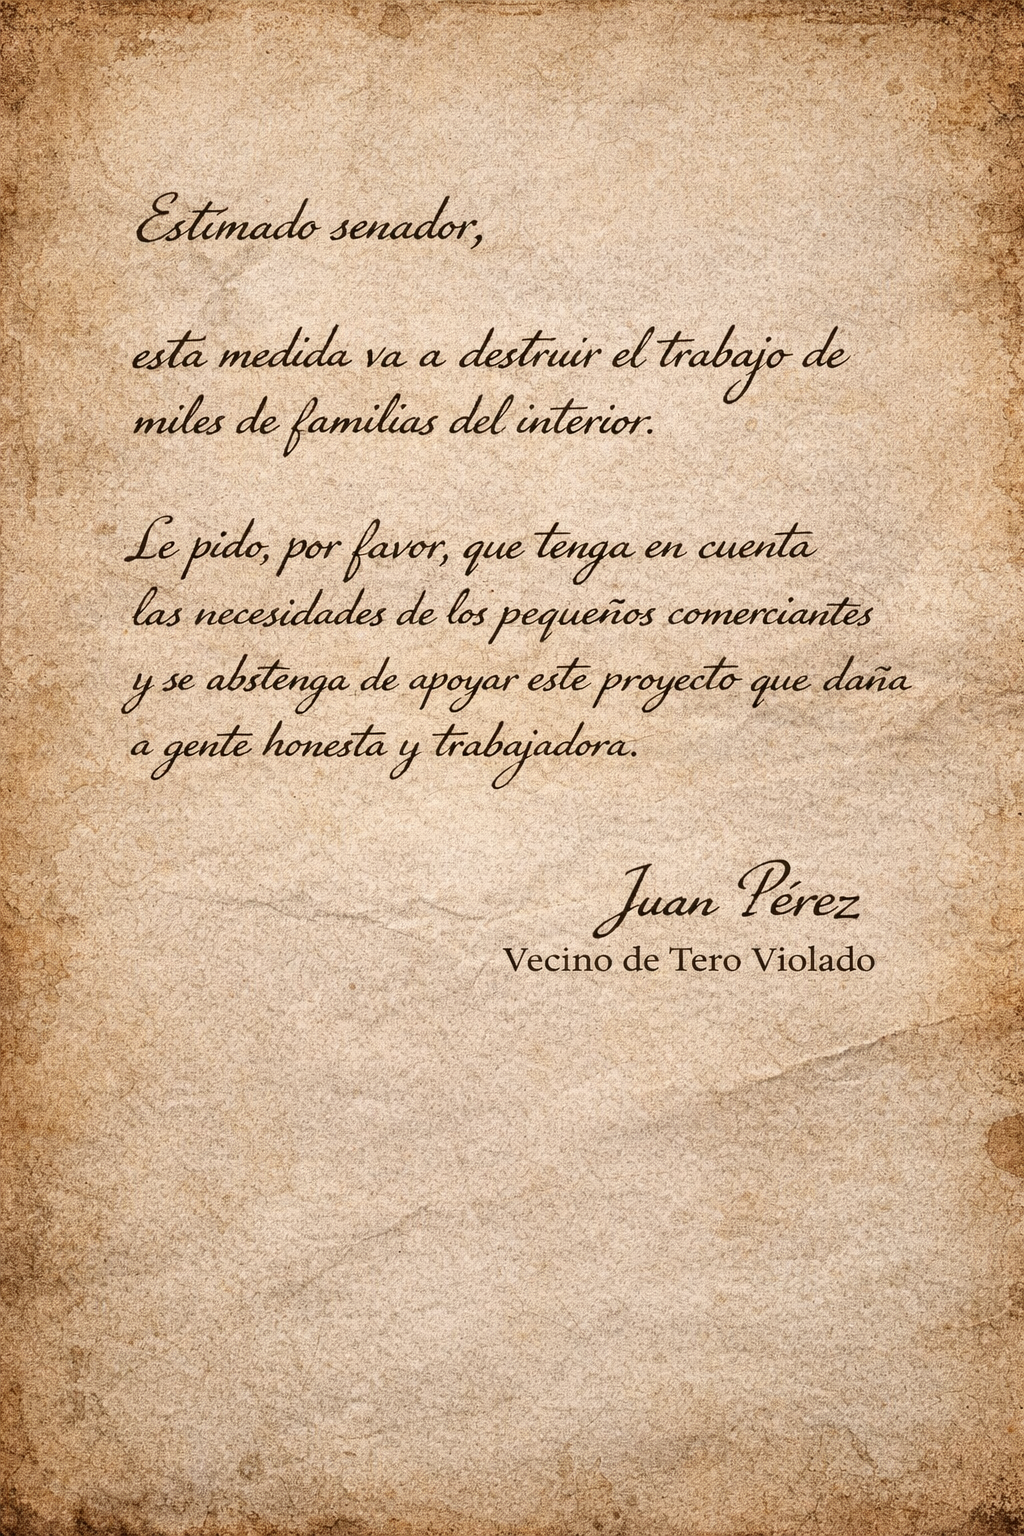 Estimado senador,
esta medida va a destruir el trabajo de
miles de familias del interior.
Le pido, por favor, que tenga en cuenta
las necesidades de los pequeños comerciantes
y se abstenga de apoyar este proyecto que daña
a gente honesta y trabajadora.
Juan Pérez
Vecino de Tero Violado